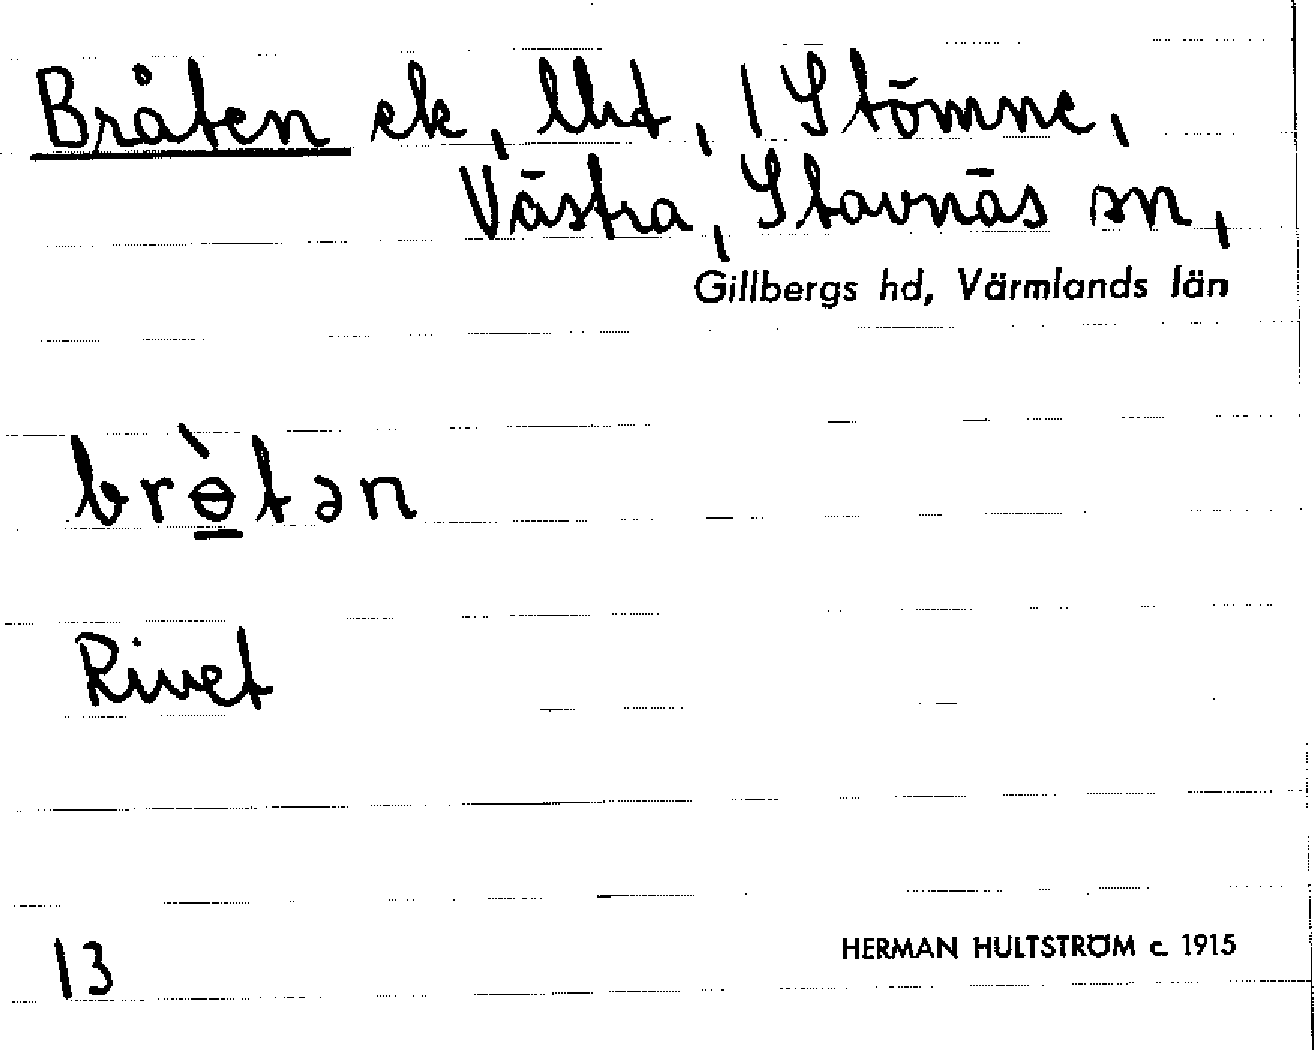 Bråten ek, lht, 1 Stömne,
Västra, Stavnäs sn,
Gillbergs hd, Värmlands län
brɵ̲̀tən
Rivet
13
HERMAN HULTSTRÖM c. 1915